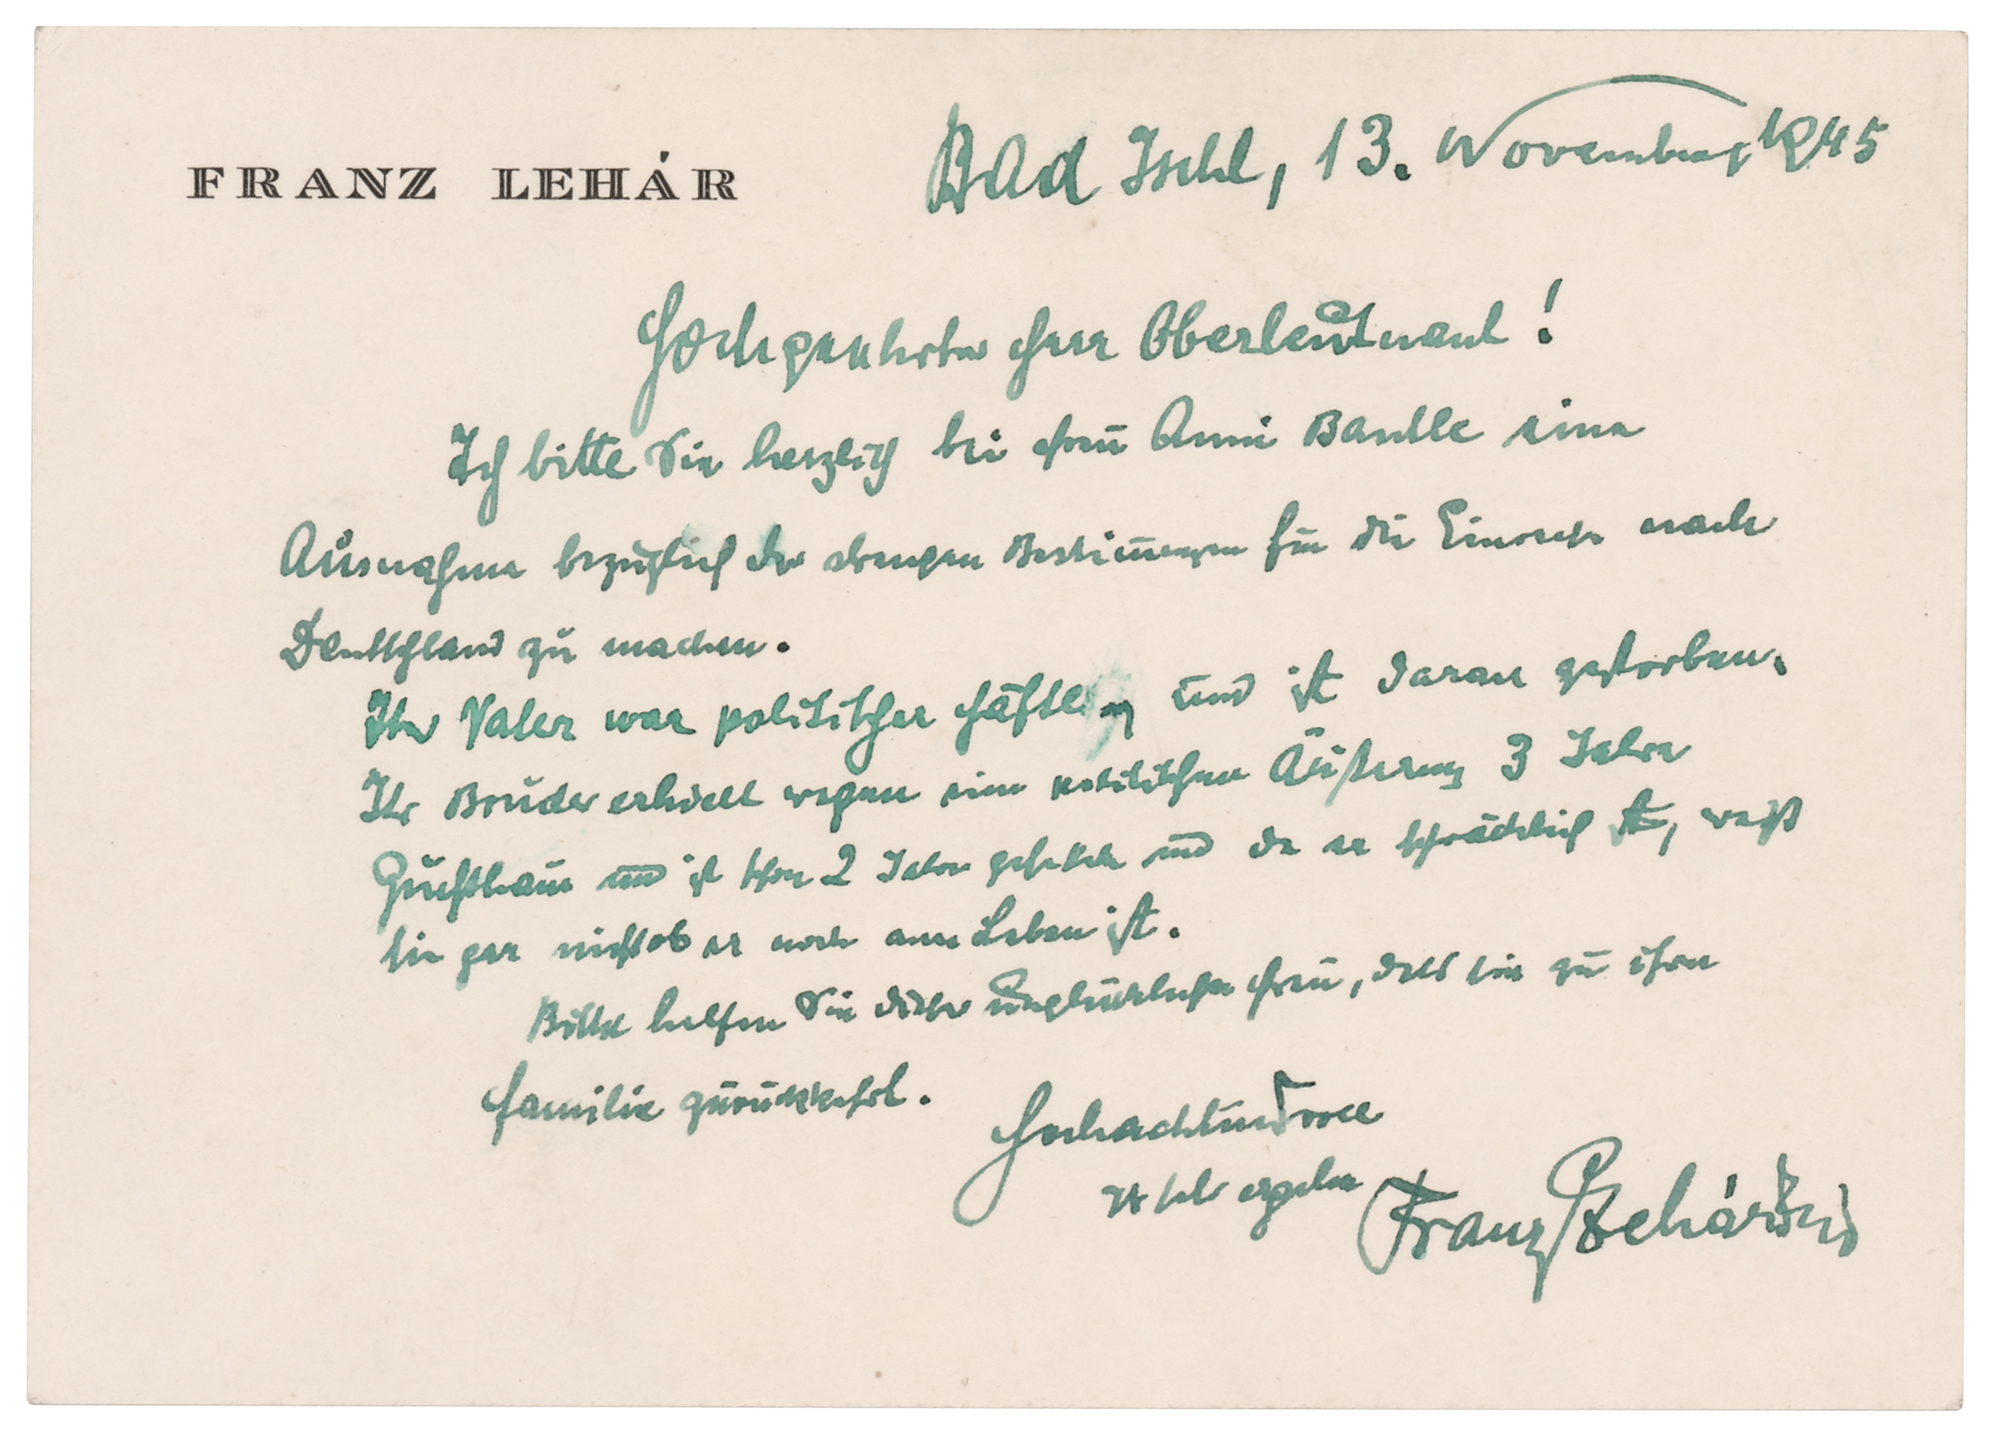 FRANZ LEHÁR
Bad Ischl, 13. November 1945
Hochgeehrter Herr Oberleutnant!
Ich bitte Sie herzlich bei Frau Anni Bandle eine
Ausnahme bezüglich der strengen Bestim̅ungen für die Einreise nach
Deutschland zu machen.
Ihr Vater war politischer Häftling und ist daran gestorben.
Ihr Bruder erhielt wegen einer politischen Äußerung 3 Jahre
Zuchthaus und ist schon 2 Jahre und da er schwächlich ist, weiß
sie gar nicht ob er noch am Leben ist.
Bitte helfen Sie dieser unglücklichen Frau, dass sie zu ihrer
Familie zurückkehrt.
Hochachtungsvoll
Ihr sehr ergeb.
Franz Lehár